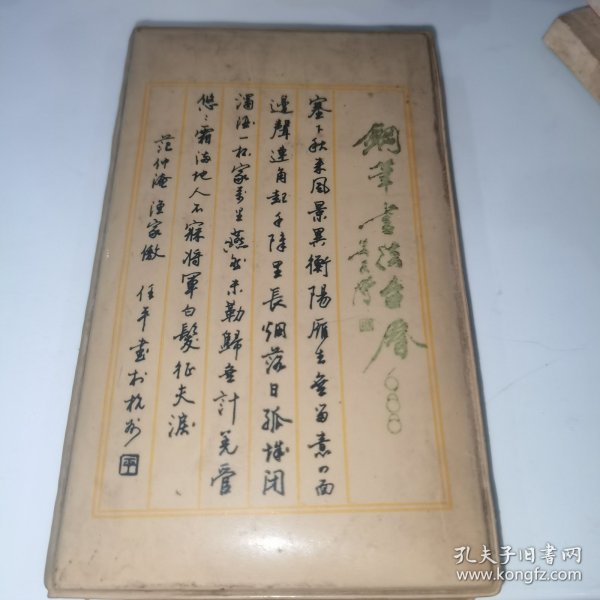 鋼筆書法台曆
塞下秋来風景異衡陽雁去無留意四面
邊聲連角起千障里長烟落日孤城闭
濁酒一杯家万里燕然未勒歸無計羌管
悠々霜满地人不寐将軍白髮征夫淚
范仲淹渔家傲 任平書於杭州
平
孔夫子旧书网
www.kongfz.com